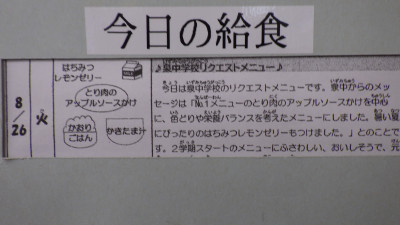 今日の給食
8/26
火
はちみつ
レモンゼリー
とり肉の
アップルソースかけ
かおり
ごはん
かきたま汁
♪泉中学校リクエストメニュー♪
今日は泉中学校のリクエストメニューです。泉中からのメッ
セージは「№1メニューのとり肉のアップルソースかけを中心
に、色どりや栄養バランスを考えたメニューにしました。暑い夏
にぴったりのはちみつレモンゼリーもつけました。」とのことで
す。2学期スタートのメニューにふさわしい、おいしそうで、元